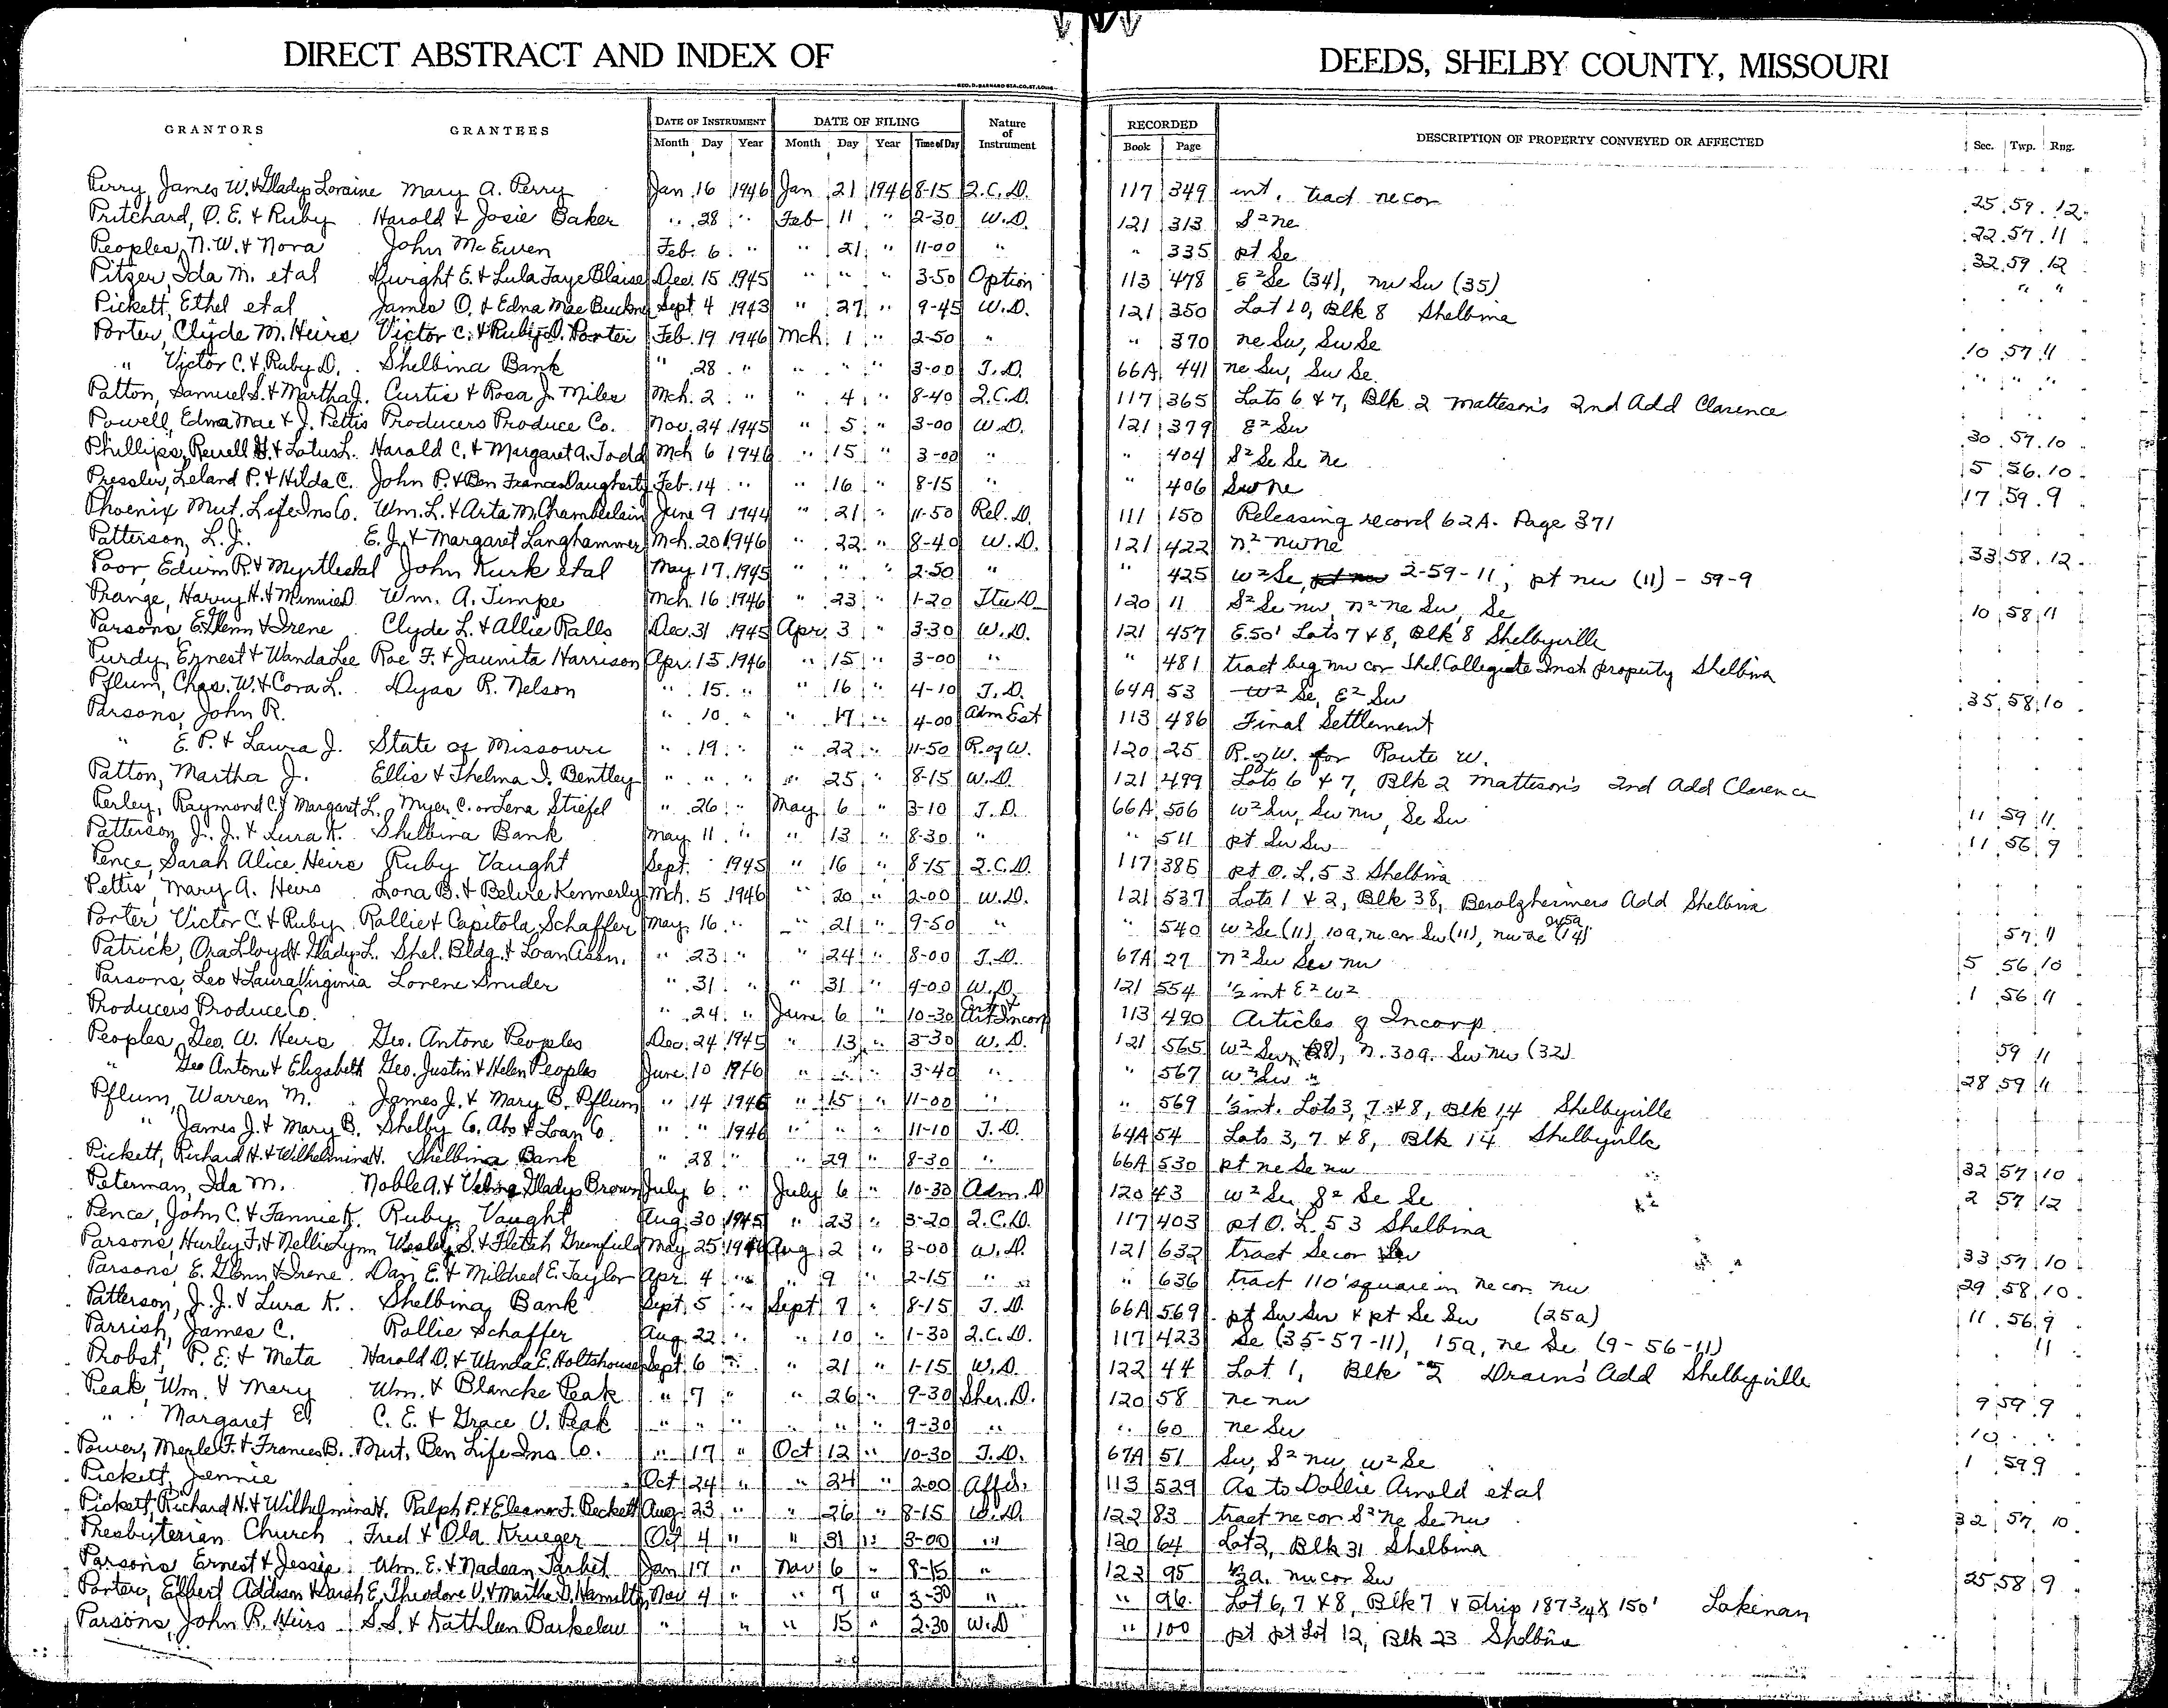 DIRECT ABSTRACT AND INDEX OF DEEDS, SHELBY COUNTY, MISSOURI
GRANTORS GRANTEES DATE OF INSTRUMENT DATE OF FILING Nature of Instrument RECORDED DESCRIPTION OF PROPERTY CONVEYED OR AFFECTED Sec. Twp. Rng.
Month Day Year Month Day Year Time of Day Book Page
Perry, James W. & Gladys Loraine Mary A. Perry Jan. 16 1946 Jan 21 1946 8-15 Q.C.D. 117 349 int. tract ne cor 25 59 12
Pritchard, O. E. & Ruby Harold & Josie Baker " 28 " Feb 11 " 2-30 W.D. 121 313 S² ne 22 57 11
Peoples, N. W. & Nora John McEwen Feb. 6 " " 21 " 11-00 " " 335 pt Se 32 59 12
Pitzer, Ida M. et al Dwight E. & Lula Faye Blaise Dec. 15 1945 " " " 3-50 Option 113 478 E² Se (34), nw Sw (35) " "
Pickett, Ethel et al James O. & Edna Mae Buckner Sept. 4 1943 " 27 " 9-45 W.D. 121 350 Lot 10, Blk 8 Shelbina
Porter, Clyde M. Heirs Victor C. & Ruby D. Porter Feb. 19 1946 Mch. 1 " 2-50 " " 370 ne Sw, Sw Se 10 57 11
" Victor C. & Ruby D. Shelbina Bank " 28 " " " " 3-00 T.D. 66A 441 ne Sw, Sw Se " " "
Patton, Samuel S. & Martha J. Curtis & Rosa J. Miles Mch. 2 " " 4 " 8-40 Q.C.D. 117 365 Lots 6 & 7, Blk 2 Matteson's 2nd Add Clarence
Powell, Edna Mae & J. Pettis Producers Produce Co. Nov. 24 1945 " 5 " 3-00 W.D. 121 379 E² Sw 30 57 10
Phillips, Revell H. & Lotus L. Harold C. & Margaret A. Todd Mch 6 1946 " 15 " 3-00 " " 404 S² Se Se ne 5 56 10
Pressler, Leland P. & Hilda C. John P. & Ben Frances Daugherty Feb. 14 " " 16 " 8-15 " " 406 Sw ne 17 59 9
Phoenix Mut. Life Ins Co. Wm. L. & Arta M. Chamberlain June 9 1944 " 21 " 11-50 Rel. D. 111 150 Releasing record 62A. Page 371
Patterson, L. J. E. J. & Margaret Langhammer Mch. 20 1946 " 22 " 8-40 W.D. 121 422 N² nw ne 33 58 12
Poor, Edwin R. & Myrtle et al John Kurk et al May 17 1945 " " " 2-50 " " 425 W² Se, pt nw 2-59-11, pt nw (11) - 59-9
Prange, Harry H. & Minnie D Wm. A. Timpe Mch. 16 1946 " 23 " 1-20 120 11 S² Se nw, N² ne Sw, Se 10 58 11
Parsons, E. Glenn & Irene Clyde L. & Allie Ralls Dec. 31 1945 Apr. 3 " 3-30 W.D. 121 457 E. 50' Lots 7 & 8, Blk 8 Shelbyville
Purdy, Ernest & Wanda Lee Roe F. & Jaunita Harrison Apr. 13 1946 " 15 " 3-00 " " 481 tract beg nw cor Shel. Collegiate Inst property Shelbina
Pflum, Chas. W. & Cora L. Dyas R. Nelson " 15 " " 16 " 4-10 T.D. 64A 53 W² Se, E² Sw 35 58 10
Parsons, John R. " 10 " " 17 " 4-00 Adm Est 113 486 Final Settlement
" E. P. & Laura J. State of Missouri " 19 " " 22 " 11-50 R. of W. 120 25 R. of W. for Route W.
Patton, Martha J. Ellis & Thelma I. Bentley " " " " 25 " 8-15 W.D. 121 499 Lots 6 & 7, Blk 2 Matteson's 2nd Add Clarence
Perley, Raymond C. & Margaret L. Myer C. or Lena Stiefel " 26 " May 6 " 3-10 T.D. 66A 506 W² Sw, Sw nw, Se Sw 11 59 11
Patterson, J. J. & Lura K. Shelbina Bank May 11 " " 13 " 8-30 " " 511 pt Sw Sw 11 56 9
Pence, Sarah Alice Heirs Ruby Vaught Sept. 1945 " 16 " 8-15 Q.C.D. 117 385 pt O. L. 53 Shelbina
Pettis, Mary A. Heirs Lona B. & Kennerly Mch. 5 1946 " 20 " 2-00 W.D. 121 537 Lots 1 & 2, Blk 38, Berolzheimers Add Shelbina
Porter, Victor C. & Ruby Rollie & Capitola Schaffer May 16 " " 21 " 9-50 " " 540 W² Se (11), 10a, ne cor Sw (11), nw ne (14) 57 11
Patrick, Ora Lloyd & Gladys L. Shel. Bldg. & Loan Assn. " 23 " " 24 " 8-00 T.D. 67A 27 N² Sw Sw nw 5 56 10
Parsons, Leo & Laura Virginia Lorene Snider " 31 " " 31 " 4-00 W.D. 121 554 ½ int E² W² 1 56 11
Producers Produce Co. " 24 " June 6 " 10-30 Art Incorp 113 490 Articles of Incorp.
Peoples, Geo. W. Heirs Geo. Antone Peoples Dec. 24 1945 " 13 " 3-30 W.D. 121 565 W² Sw (28), N. 30a. Sw nw (32) 59 11
" Geo Antone & Elizabeth Geo. Justin & Helen Peoples June 10 1946 " " " 3-40 " " 567 W² Sw " 28 59 11
Pflum, Warren M. James J. & Mary B. Pflum " 14 1946 " 15 " 11-00 " " 569 ½ int. Lots 3, 7 & 8, Blk 14 Shelbyville
" James J. & Mary B. Shelby Co. Abs & Loan Co. " " 1946 " " " 11-10 T.D. 64A 54 Lots 3, 7 & 8, Blk 14 Shelbyville
Pickett, Richard H. & Wilhelmina H. Shelbina Bank " 28 " " 29 " 8-30 " 66A 530 pt ne Se nw 32 57 10
Peterman, Ida M. Noble A. & Gladys Brown July 6 " July 6 " 10-30 Adm. D 120 43 W² Se, S² Se Se 2 57 12
Pence, John C. & Fannie K. Ruby Vaught Aug. 30 1945 " 23 " 3-20 Q.C.D. 117 403 pt O. L. 53 Shelbina
Parsons, Hurley F. & Nellie Lynn Wesley S. & Fletah Greenfield May 25 1946 Aug 2 " 3-00 W.D. 121 632 tract Se cor 33 57 10
Parsons, E. Glenn & Irene Dan E. & Mildred E. Taylor Apr. 4 " " 9 " 2-15 " " 636 tract 110' square in ne cor nw 29 58 10
Patterson, J. J. & Lura K. Shelbina Bank Sept. 5 " Sept 7 " 8-15 T.D. 66A 569 pt Sw Sw & pt Se Sw (25a) 11 56 9
Parrish, James C. Rollie Schaffer Aug. 22 " " 10 " 1-30 Q.C.D. 117 423 Se (35-57-11), 15a, ne Se (9-56-11) 11
Probst, P. E. & Meta Harold D. & Wanda E. Holtshouser Sept. 6 " " 21 " 1-15 W.D. 122 44 Lot 1, Blk 2 Drains' Add Shelbyville
Peak, Wm. & Mary Wm. & Blanche Peak " 7 " " 26 " 9-30 Sher. D. 120 58 ne nw 9 59 9
" Margaret E. C. E. & Grace V. Peak " " " " " " 9-30 " " 60 ne Sw 10 " "
Power, Merle F. & Frances B. Mut. Ben Life Ins Co. " 17 " Oct 12 " 10-30 T.D. 67A 51 Sw, S² nw, W² Se 1 59 9
Pickett, Jennie Oct 24 " " 24 " 2-00 Affid. 113 529 As to Dollie Arnold et al
Pickett, Richard H. & Wilhelmina H. Ralph P. & Eleanor F. Beckett Aug. 23 " " 26 " 8-15 W.D. 122 83 tract ne cor S² ne Se nw 32 57 10
Presbyterian Church Fred & Ola Krueger Oct 4 " " 31 " 3-00 " 120 64 Lot 2, Blk 31 Shelbina
Parsons, Ernest & Jessie Wm. E. & Nadean Tarbet Jan 17 " Nov 6 " 8-15 " 122 95 ½a. nw cor Sw 25 58 9
Porter, Elbert Addison & Sarah E. Theodore V. & Martha D. Hamilton Nov 4 " " 7 " 3-30 " " 96 Lot 6, 7 & 8, Blk 7 & Strip 187¾ x 150' Lakenan
Parsons, John R. Heirs S.S. & Kathleen Barkelew " " " 15 " 2-30 W.D " 100 pt pt Lot 12, Blk 23 Shelbina